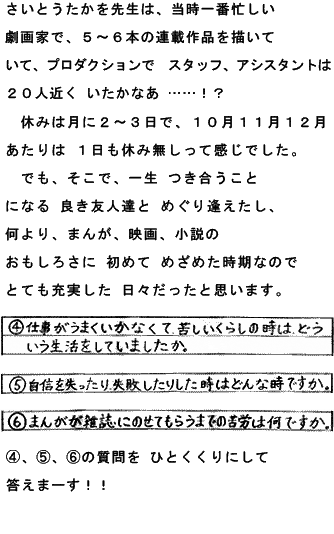 さいとうたかを先生は、当時一番忙しい
劇画家で、５～６本の連載作品を描いて
いて、プロダクションで　スタッフ、アシスタントは
２０人近く いたかなあ ……！？
　休みは月に２～３日で、１０月１１月１２月
あたりは １日も休み無しって感じでした。
　でも、そこで、一生 つき合うこと
になる 良き友人達と めぐり逢えたし、
何より、まんが、映画、小説の
おもしろさに 初めて めざめた時期なので
とても充実した 日々だったと思います。
④仕事がうまくいかなくて苦しいくらしの時は、どう
いう生活をしていましたか。
⑤自信を失ったり失敗したりした時はどんな時ですか。
⑥まんがが雑誌にのせてもらうまでの苦労は何ですか。
④、⑤、⑥の質問を ひとくくりにして
答えまーす！！